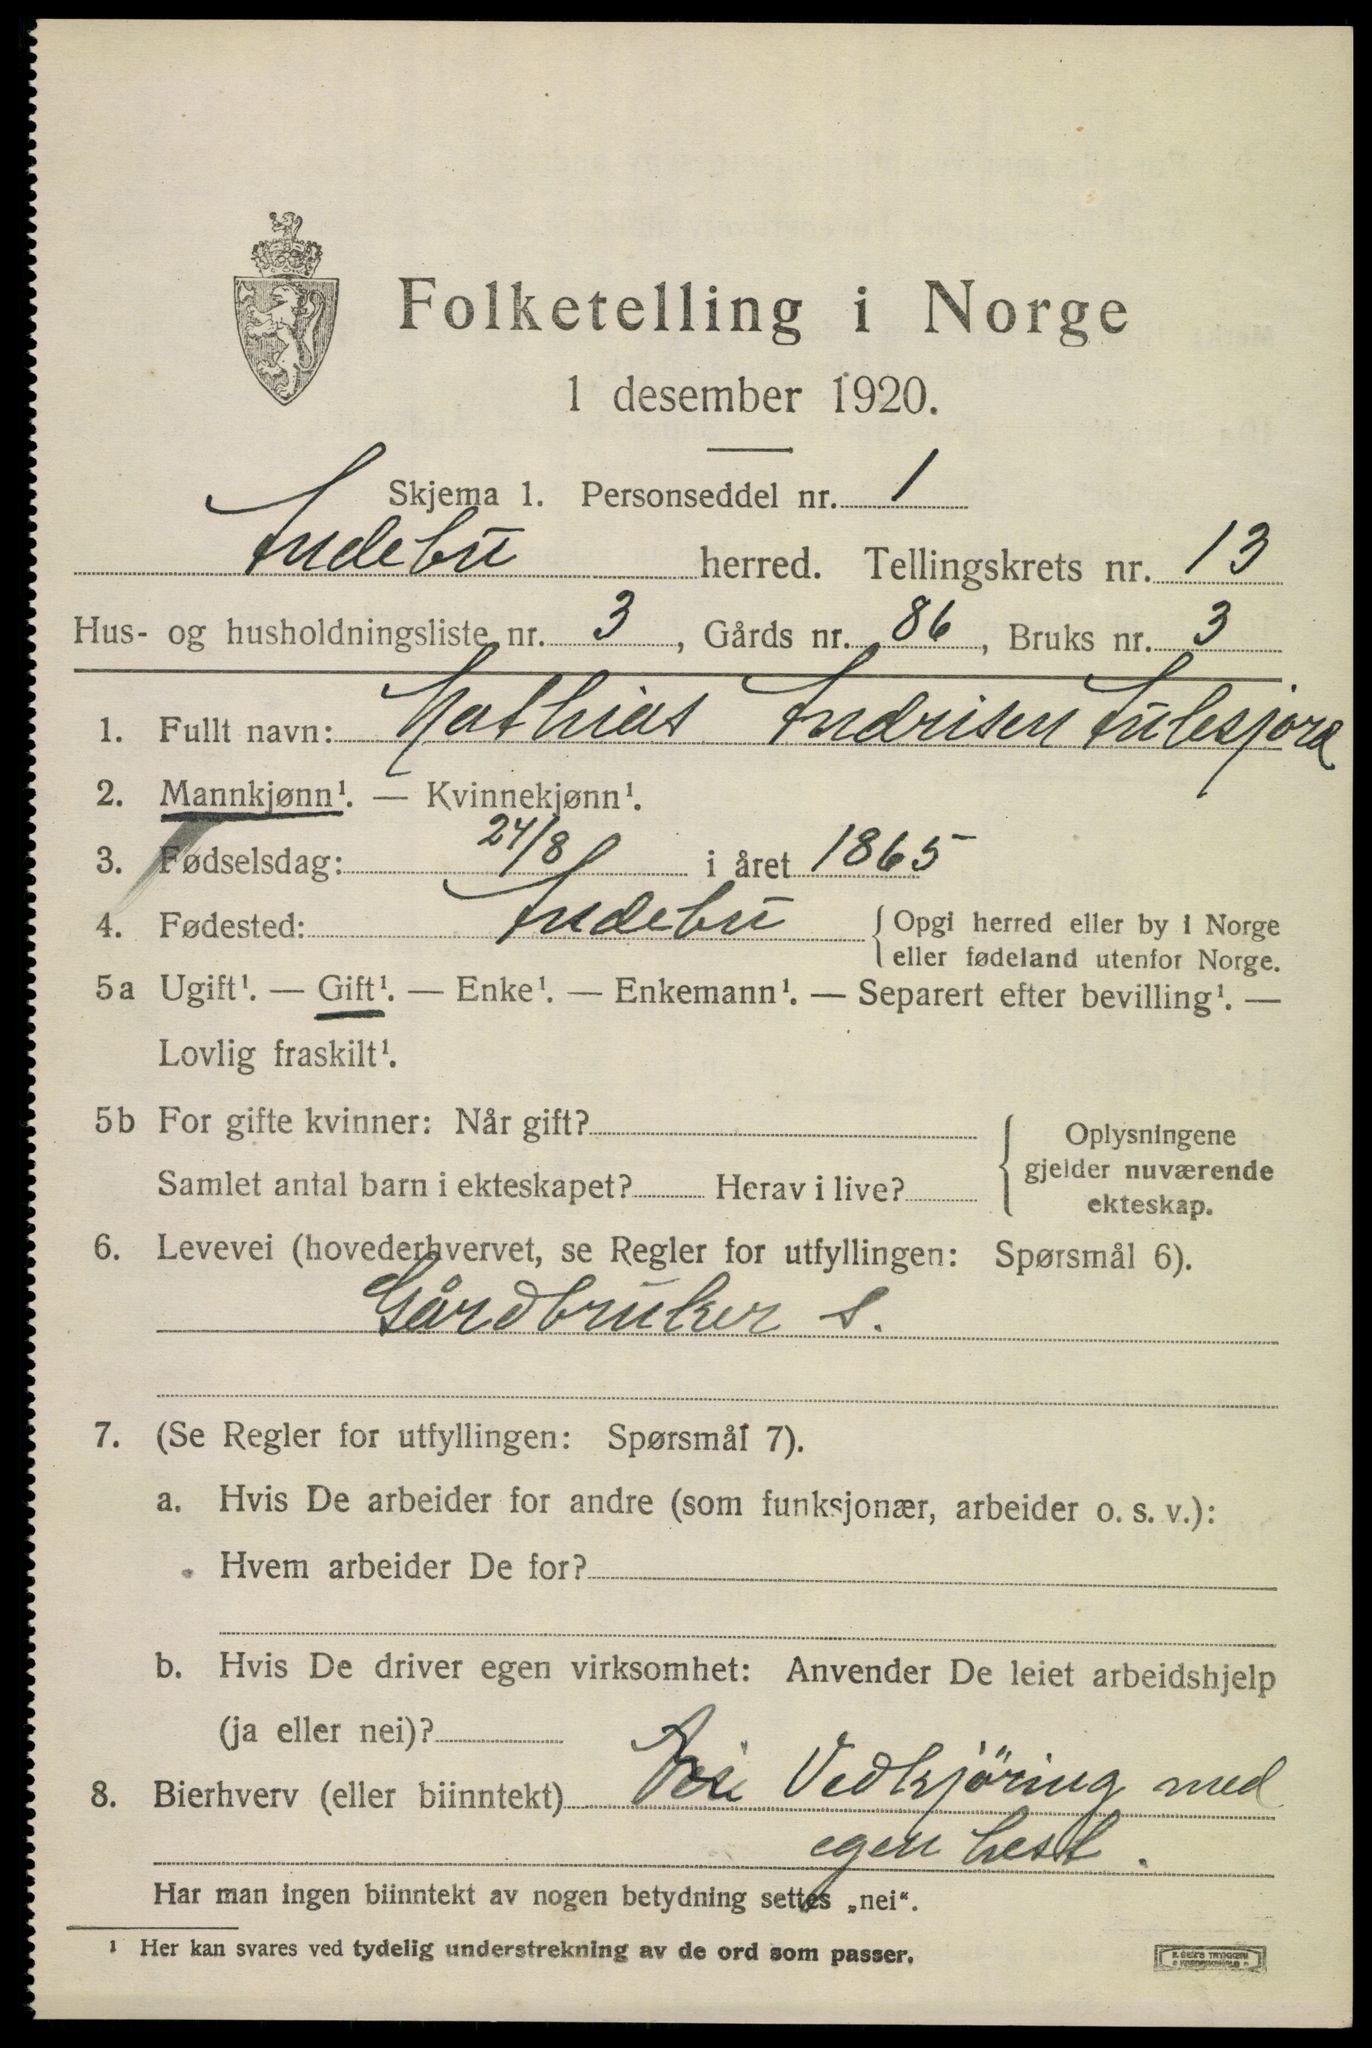 Folketelling i Norge
1 desember 1920.
Skjema 1. Personseddel nr. 1
Andebu herred. Tellingskrets nr. 13
Hus- og husholdningsliste nr. 3, Gårds nr. 86, Bruks nr. 3
1. Fullt navn: Mathias Andrisen
2. Mannkjønn¹. — Kvinnekjønn¹.
3. Fødselsdag: 24/8 i året 1865
4. Fødested: Andebu {Opgi herred eller by i Norge
eller fødeland utenfor Norge.
5a Ugift¹. — Gift¹. — Enke¹. — Enkemann¹. — Separert efter bevilling¹. —
Lovlig fraskilt¹.
5b For gifte kvinner: Når gift?
Samlet antal barn i ekteskapet? Herav i live?
{Oplysningene
gjelder nuværende
ekteskap.
6. Levevei (hovederhvervet, se Regler for utfyllingen: Spørsmål 6).
Gårdbruker s.
7. (Se Regler for utfyllingen: Spørsmål 7).
a. Hvis De arbeider for andre (som funksjonær, arbeider o. s. v.):
Hvem arbeider De for?
b. Hvis De driver egen virksomhet: Anvender De leiet arbeidshjelp
(ja eller nei)?
8. Bierhverv (eller biinntekt) Vedkjöring med
egen hest.
Har man ingen biinntekt av nogen betydning settes „nei“.
¹ Her kan svares ved tydelig understrekning av de ord som passer.